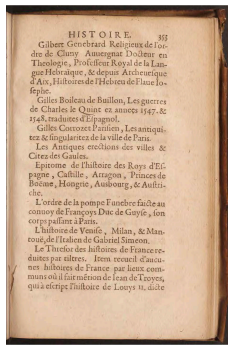 HISTOIRE. 355
Gilbert Genebrard Religieux de l'or-
dre de Cluny Auuergnat Docteur en
Theologie, Professeur Royal de la Lan-
gue Hebraïque, & depuis Archeuesque
d'Aix, Histoires de l'Hebreu de Flaue Io-
sephe.
Gilles Boileau de Buillon, Les guerres
de Charles le Quint ez annees 1547. &
1548. traduites d'Espagnol.
Gilles Corrozet Parisien, Les antiqui-
tez & singularitez de la ville de Paris.
Les Antiques erections des villes &
Citez des Gaules.
Epitome de l'histoire des Roys d'Es-
pagne, Castille, Arragon, Princes de
Boëme, Hongrie, Ausbourg, & Austri-
che.
L'ordre de la pompe Funebre faicte au
conuoy de Françoys Duc de Guyse, son
corps passant à Paris.
L'histoire de Venise, Milan, & Man-
touë, de l'Italien de Gabriel Simeon.
Le Thresor des histoires de France re-
duites par tiltres. Item recueil d'aucu-
nes histoires de France par lieux com-
muns où il fait métion de Iean de Troyes,
qui a escript l'histoire de Louys 11. dicte